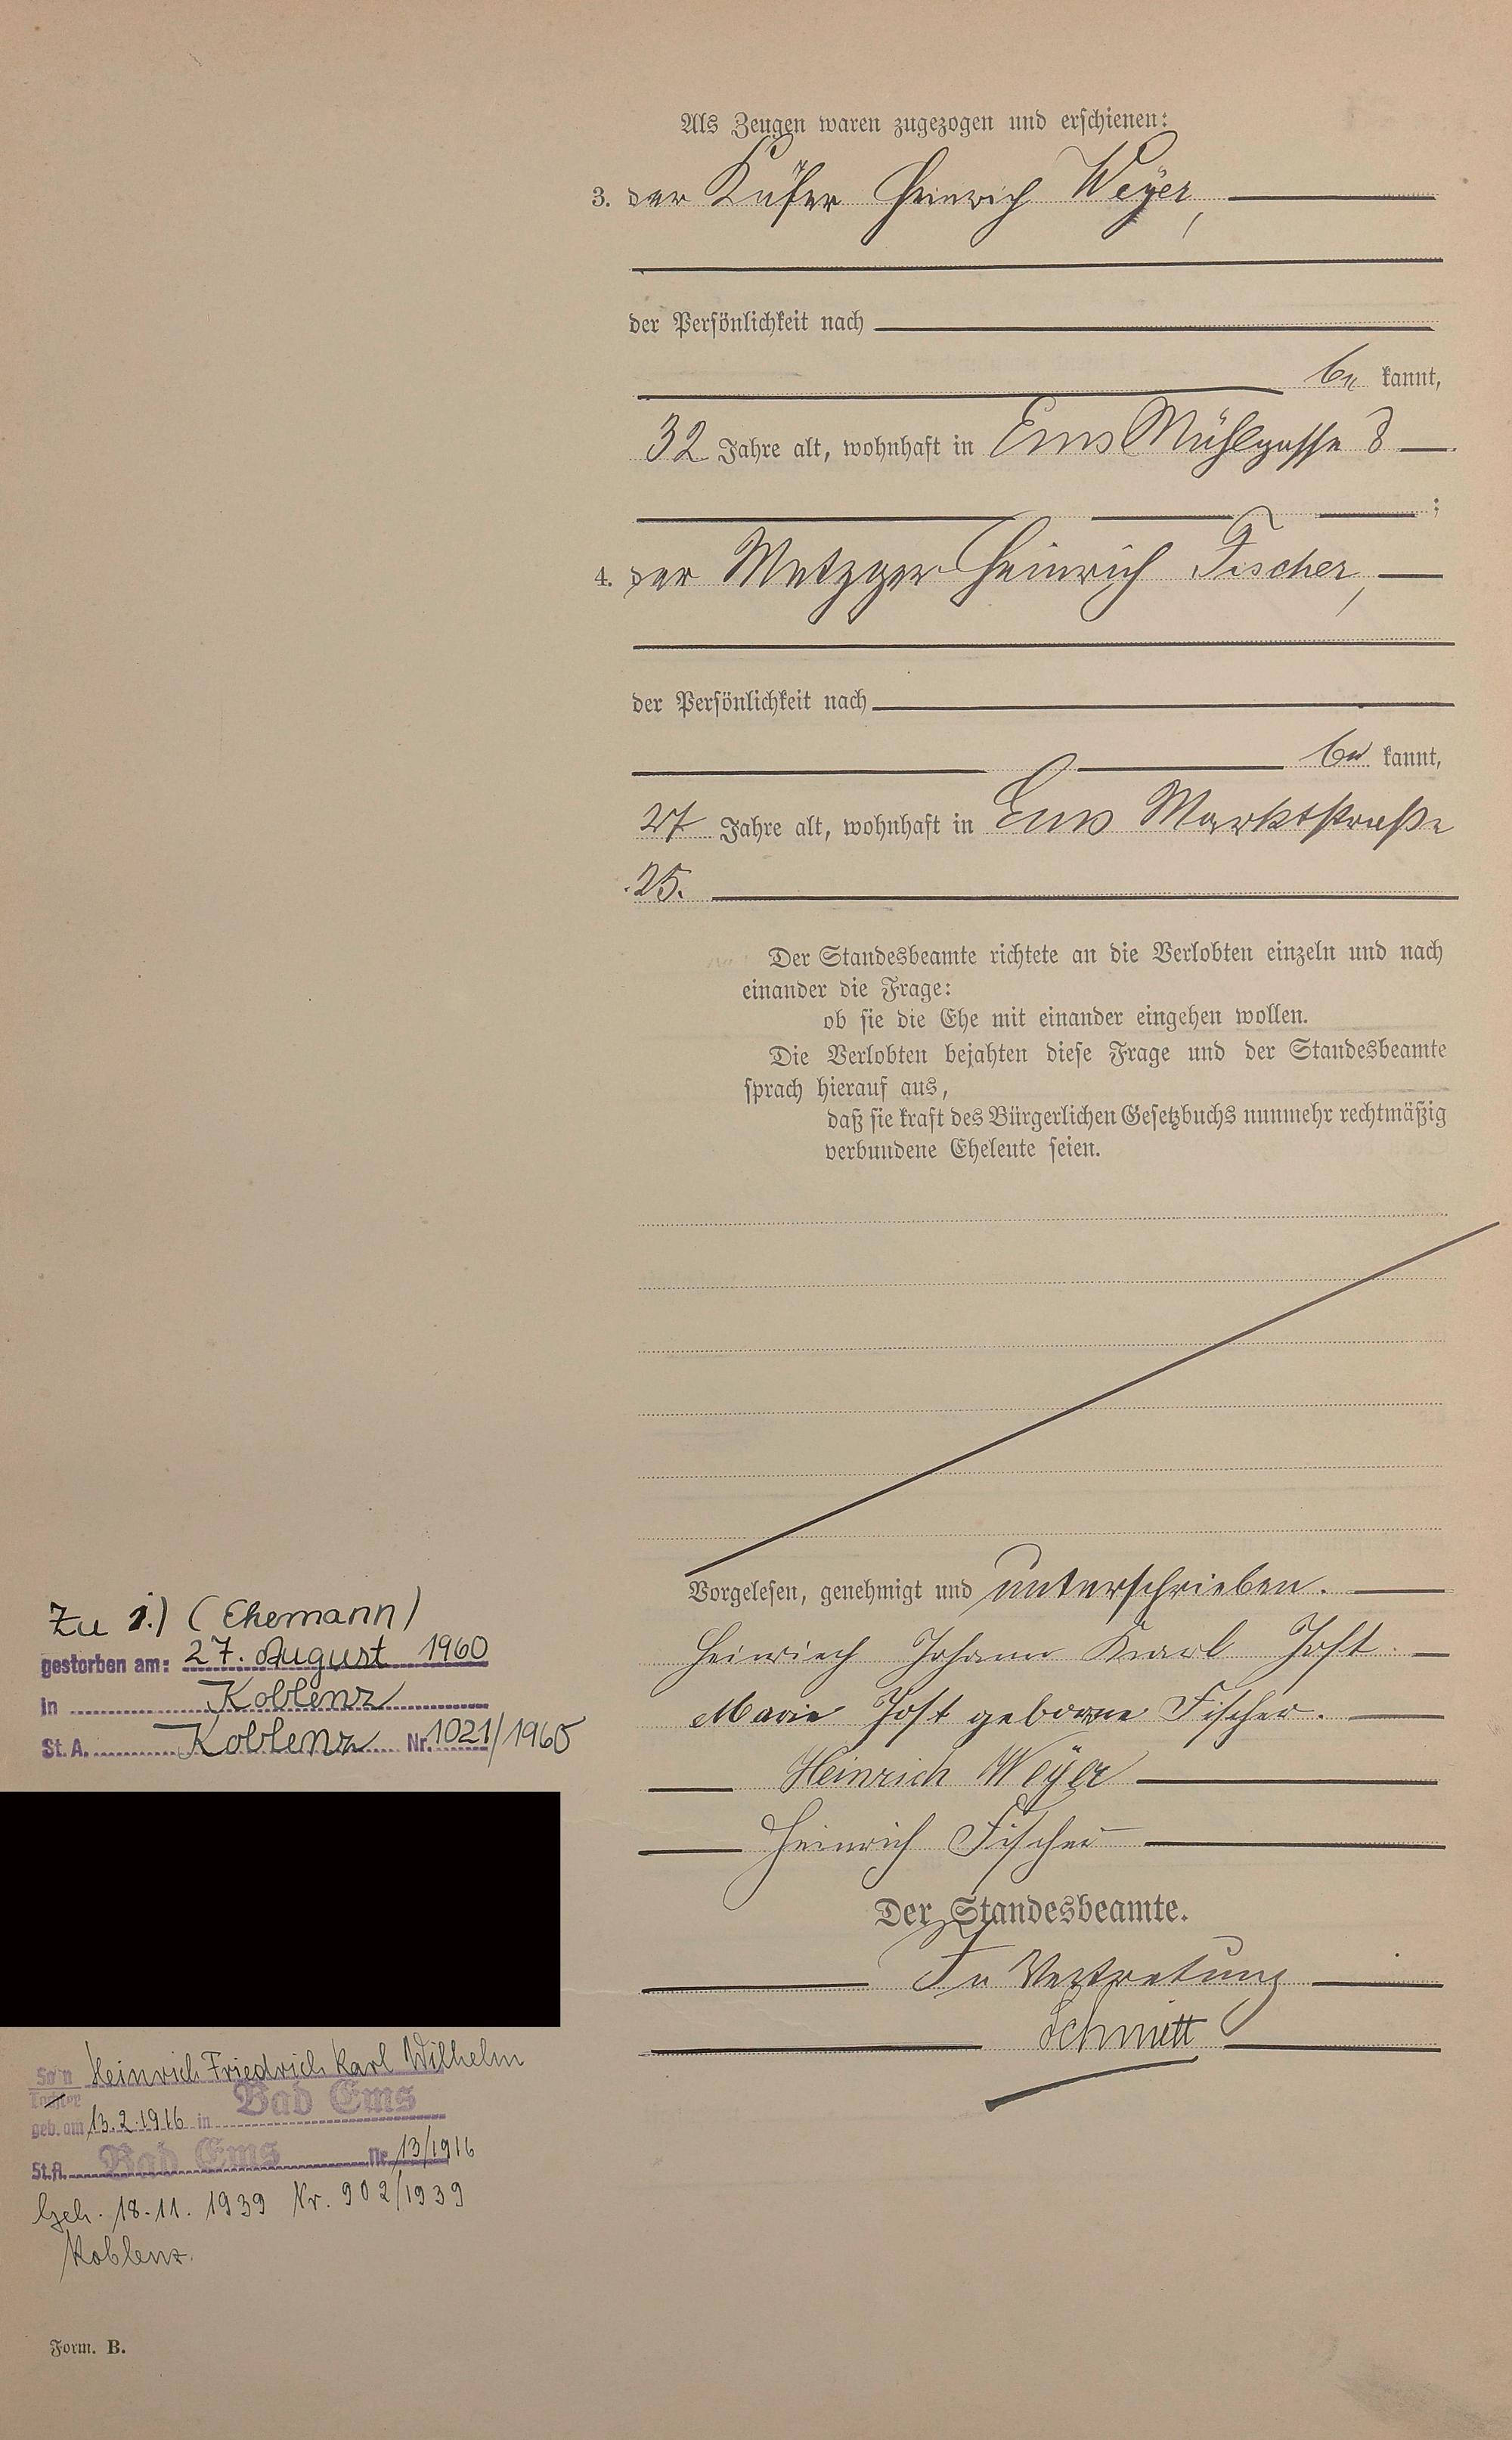 Als Zeugen waren zugezogen und erschienen:
3. der Küfer Heinrich Weyer,
der Persönlichkeit nach
be kannt,
32 Jahre alt, wohnhaft in Ems Mühlgasse 8
;
4. der Metzger Heinrich Fischer,
der Persönlichkeit nach
be kannt,
27 Jahre alt, wohnhaft in Ems Marktstraße
25.
Der Standesbeamte richtete an die Verlobten einzeln und nach
einander die Frage:
ob sie die Ehe mit einander eingehen wollen.
Die Verlobten bejahten diese Frage und der Standesbeamte
sprach hierauf aus,
daß sie kraft des Bürgerlichen Gesetzbuchs nunmehr rechtmäßig
verbundene Eheleute seien.
Vorgelesen, genehmigt und unterschrieben.
Heinrich Johann Karl Jost
Marie Jost geborne Fischer.
Heinrich Weyer
Heinrich Fischer
Der Standesbeamte.
In Vertretung
Schmitt
Zu 1.) (Ehemann)
gestorben am: 27. August 1960
in Koblenz
St. A. Koblenz Nr. 1021/1960
Sohn Heinrich Friedrich Karl Wilhelm
Tochter
geb. am 13.2.1916 in Bad Ems
St.A. Bad Ems Nr. 13/1916
Geh. 18.11.1939 Nr. 902/1939
Koblenz.
Form. B.